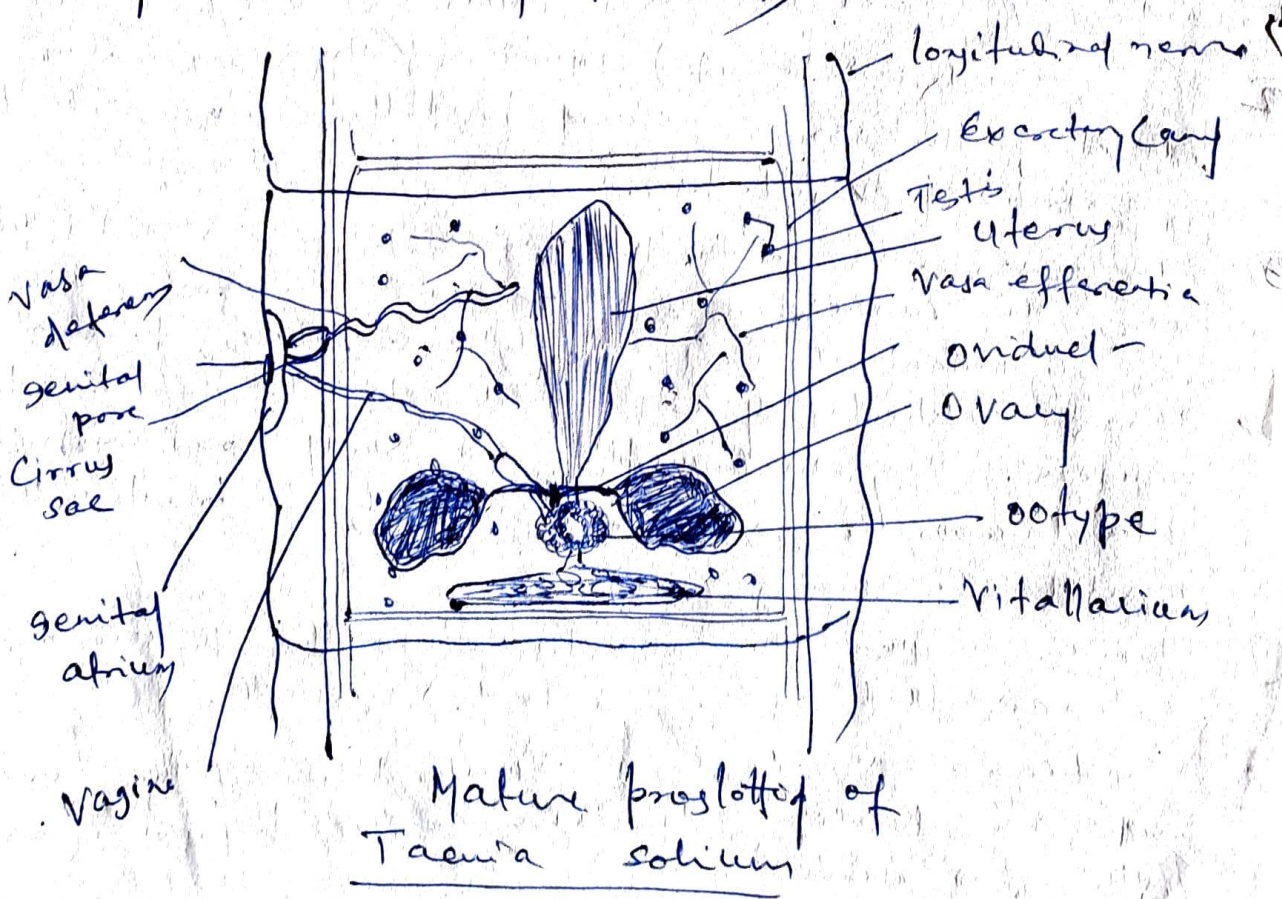 longitudinal nerve
Excretory Canal
Testis
Uterus
Vasa efferentia
Oviduct
Ovary
ootype
Vitallarium
Vasa
deferens
genital
pore
Cirrus
sac
genital
atrium
Vagina
Mature proglottid of
Taenia solium